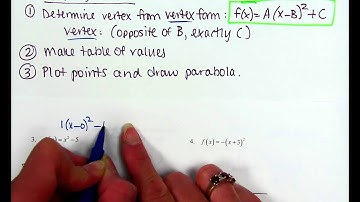 ① Determine vertex from vertex form: f(x)=A(x-B)²+C
vertex: (opposite of B, exactly C)
② make table of values
③ Plot points and draw parabola.
1(x-0)² -
3. = x² - 5
4. f(x) = -(x+3)²